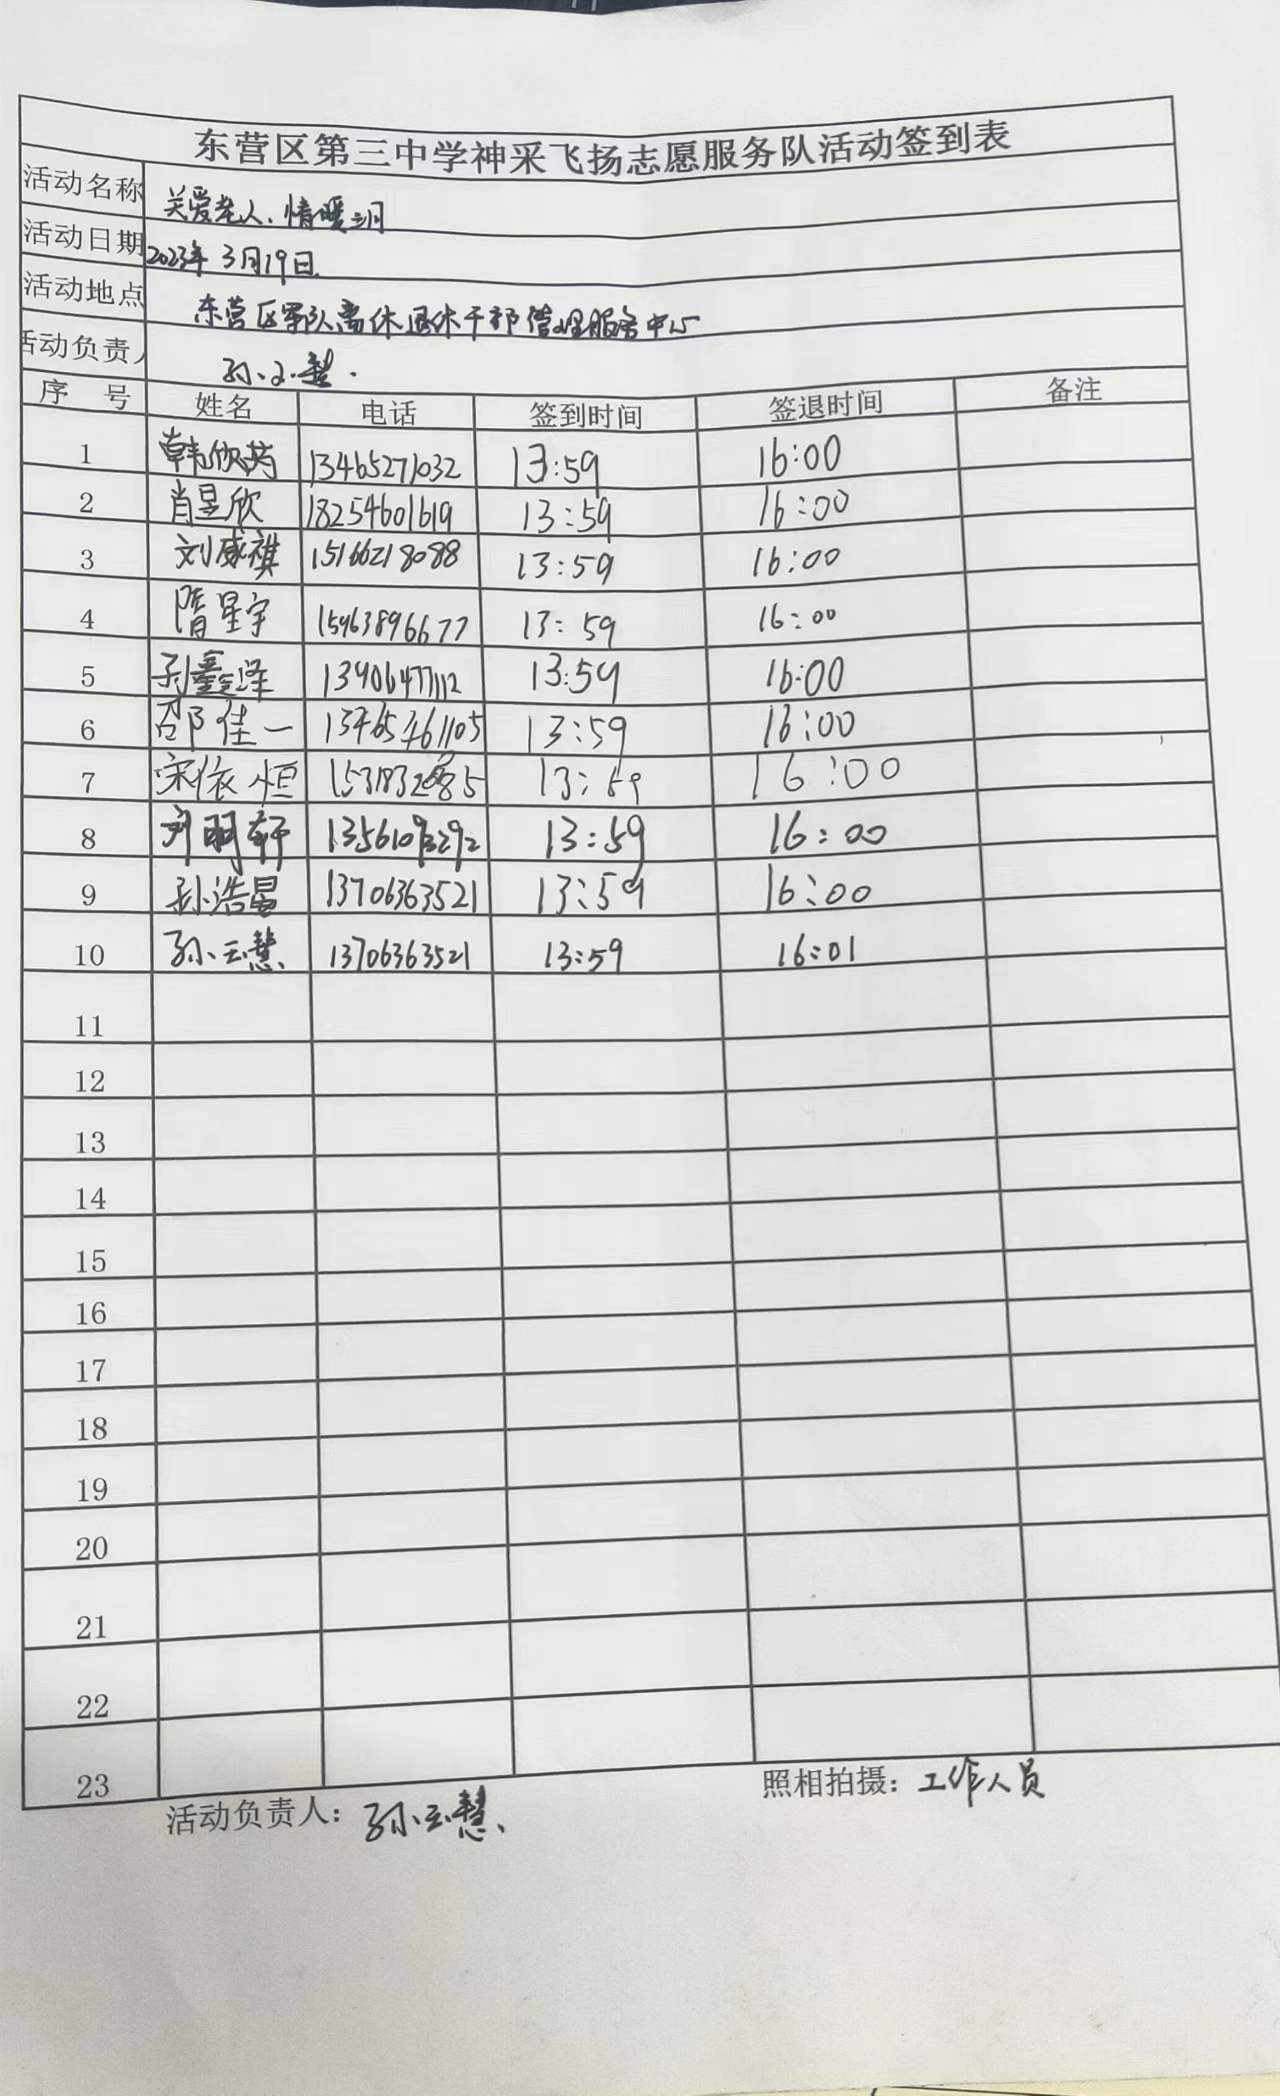 东营区第三中学神采飞扬志愿服务队活动签到表
活动名称 关爱老人、情暖三月
活动日期 2023年3月19日
活动地点 东营区军队离休退休干部管理服务中心
活动负责人 孙云慧
序 号 姓名 电话 签到时间 签退时间 备注
1 韩欣芮 13465271032 13:59 16:00
2 肖昱欣 18254601619 13:59 16:00
3 刘威祺 15166218088 13:59 16:00
4 隋星宇 15963896677 13:59 16:00
5 孙鑫泽 13406477112 13:59 16:00
6 邵佳一 13465461105 13:59 16:00
7 宋依恒 13:59 16:00
8 明轩 13:59 16:00
9 孙浩 13706363521 13:59 16:00
10 孙云慧 13706363521 13:59 16:01
11
12
13
14
15
16
17
18
19
20
21
22
23
活动负责人：孙云慧
照相拍摄：工作人员